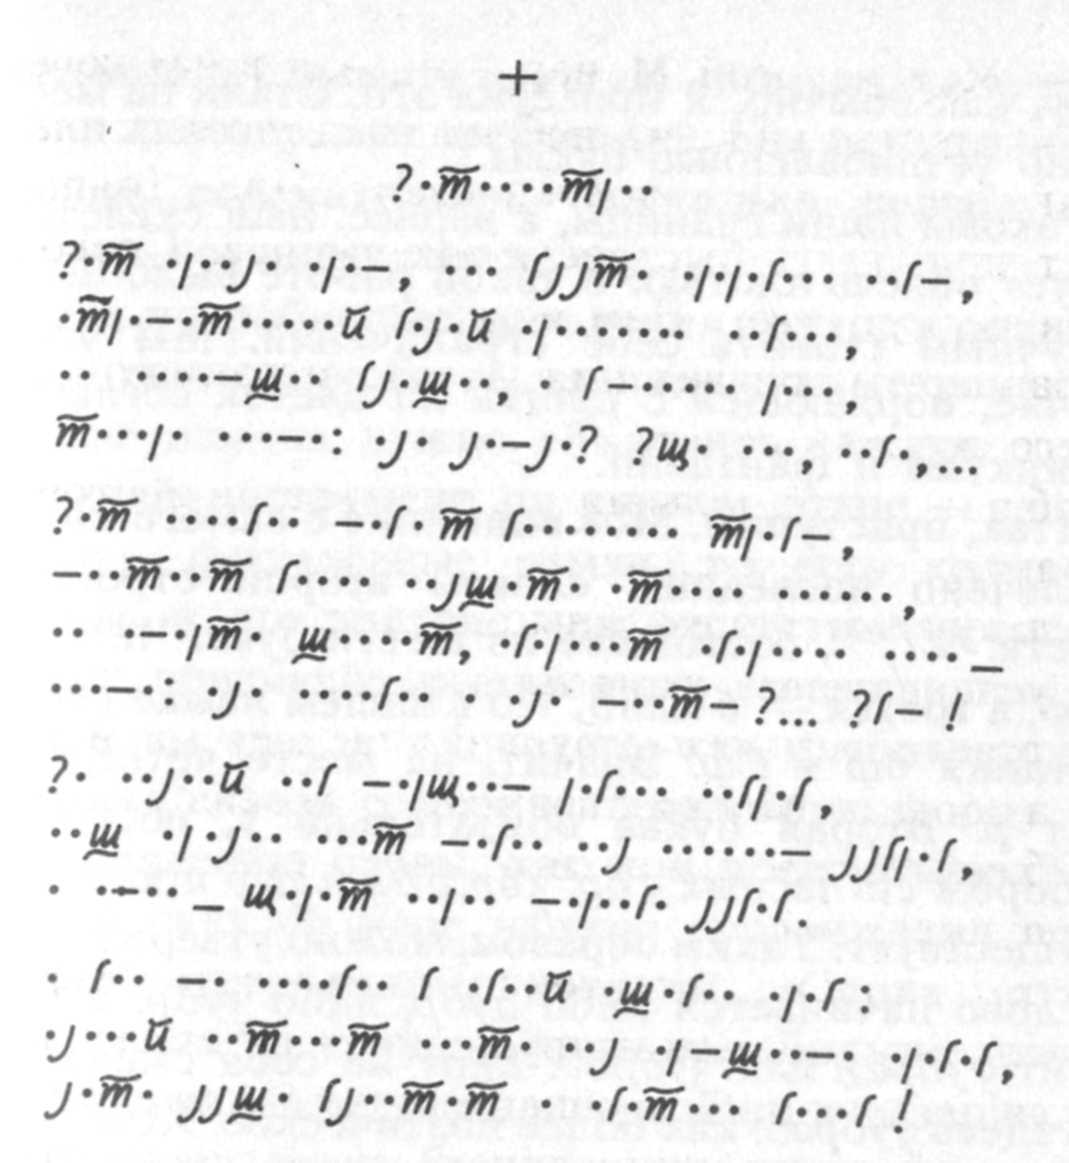 +
?·т̅····т̅ı··
?·т̅ ·ı··ȷ· ·ı·–, ··· ſȷȷт̅· ·ı·ı·ſ··· ··ſ–,
·т̅ı·–·т̅·····й ſ·ȷ·й ·ı······· ···ſ···,
·· ····–ш̲·· ſȷ·ш̲··, · ſ–······ ı···,
т̅···ı· ···–·: ·ȷ· ȷ·–ȷ·? ?щ· ···, ··ſ·,...
?·т̅ ····ſ·· –·ſ· т̅ ſ······· т̅ı·ſ–,
–··т̅··т̅ ſ···· ··ȷш̲·т̅· ·т̅···· ·······,
·· ·–·ıт̅· ш̲····т̅, ·ſ·ı···т̅ ·ſ·ı···· ····_
···–·· ·ȷ· ····ſ·· · ·ȷ· –··т̅–?... ?ſ–!
?· ··ȷ··й ··ſ –·ıщ··– ı·ſ··· ··ſı·ſ,
··ш̲ ·ı·ȷ·· ···т̅ –·ſ·· ··ȷ ······– ȷȷſı·ſ,
· ··–··_ щ·ı·т̅ ··ı·· –·ı··ſ· ȷȷſ·ſ.
· ſ·· –· ····ſ·· ſ ·ſ··й ·ш̲·ſ·· ·ı·ſ:
·ȷ···й ··т̅···т̅ ···т̅· ȷ· ·ı–ш̲··–· ·ı·ſ·ſ,
ȷ·т̅· ȷȷш̲· ſȷ··т̅·т̅ ·ſ·т̅··· ſ···ſ!